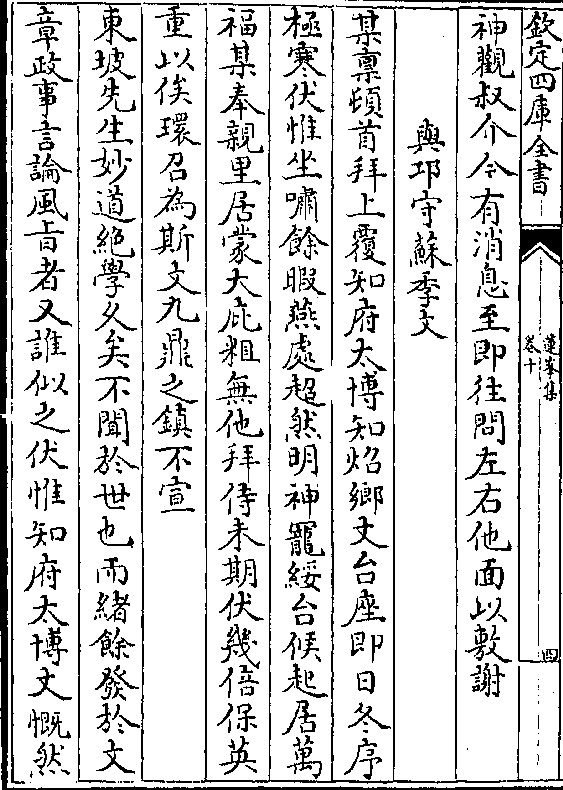 欽定四庫全書
蓮峯集
卷十
四
神觀叔介今有消息至即往問左右他面以敷謝
與邛守蘇季文
某稟頓首拜上覆知府太博知焰鄉丈台座即日冬序
極寒伏惟坐嘯餘暇燕處超然明神寵綏台候起居萬
福某奉親里居蒙大庇粗無他拜侍未期伏幾倍保英
重以俟環召為斯文九鼎之鎮不宣
東坡先生妙道絕學久矣不聞於世也而緒餘發於文
章政事言論風旨者又誰似之伏惟知府太博丈慨然